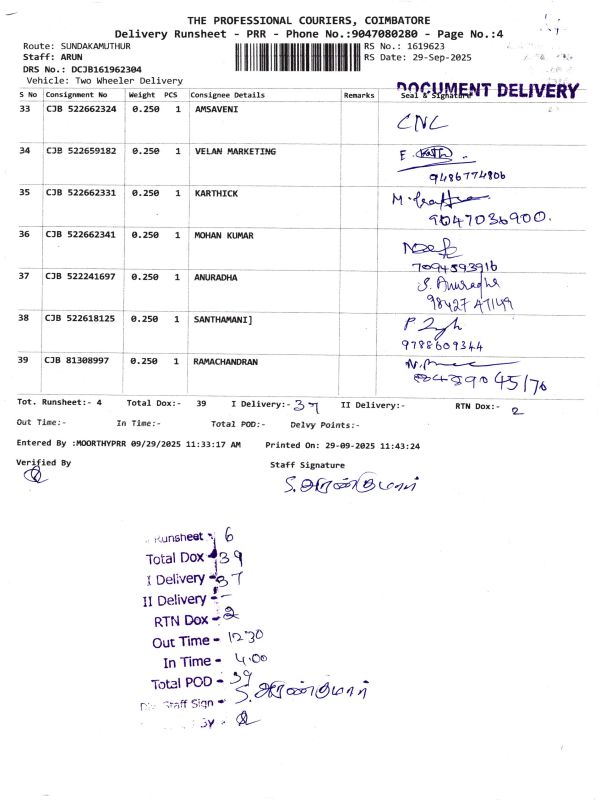 THE PROFESSIONAL COURIERS, COIMBATORE
Delivery Runsheet - PRR - Phone No.:9047080280 - Page No.:4
Route: SUNDAKAMUTHUR RS No.: 1619623
Staff: ARUN RS Date: 29-Sep-2025
DRS No.: DCJB161962304
Vehicle: Two Wheeler Delivery
DOCUMENT DELIVERY
S No Consignment No Weight PCS Consignee Details Remarks Seal & Signature
33 CJB 522662324 0.250 1 AMSAVENI CNL
34 CJB 522659182 0.250 1 VELAN MARKETING E.
9486774806
35 CJB 522662331 0.250 1 KARTHICK M.
9047036900.
36 CJB 522662341 0.250 1 MOHAN KUMAR
7094593916
37 CJB 522241697 0.250 1 ANURADHA S. Anuradha
38 CJB 522618125 0.250 1 SANTHAMANI] P
9788609344
39 CJB 81308997 0.250 1 RAMACHANDRAN
Tot. Runsheet:- 4 Total Dox:- 39 I Delivery:- 37 II Delivery:- RTN Dox:- 2
Out Time:- In Time:- Total POD:- Delvy Points:-
Entered By :MOORTHYPRR 09/29/2025 11:33:17 AM Printed On: 29-09-2025 11:43:24
Verified By Staff Signature
S. அருண்குமார்
Runsheet - 6
Total Dox - 39
I Delivery - 37
II Delivery - -
RTN Dox - 2
Out Time - 12.30
In Time - 4.00
Total POD - 39
Staff Sign - S. அருண்குமார்
By -